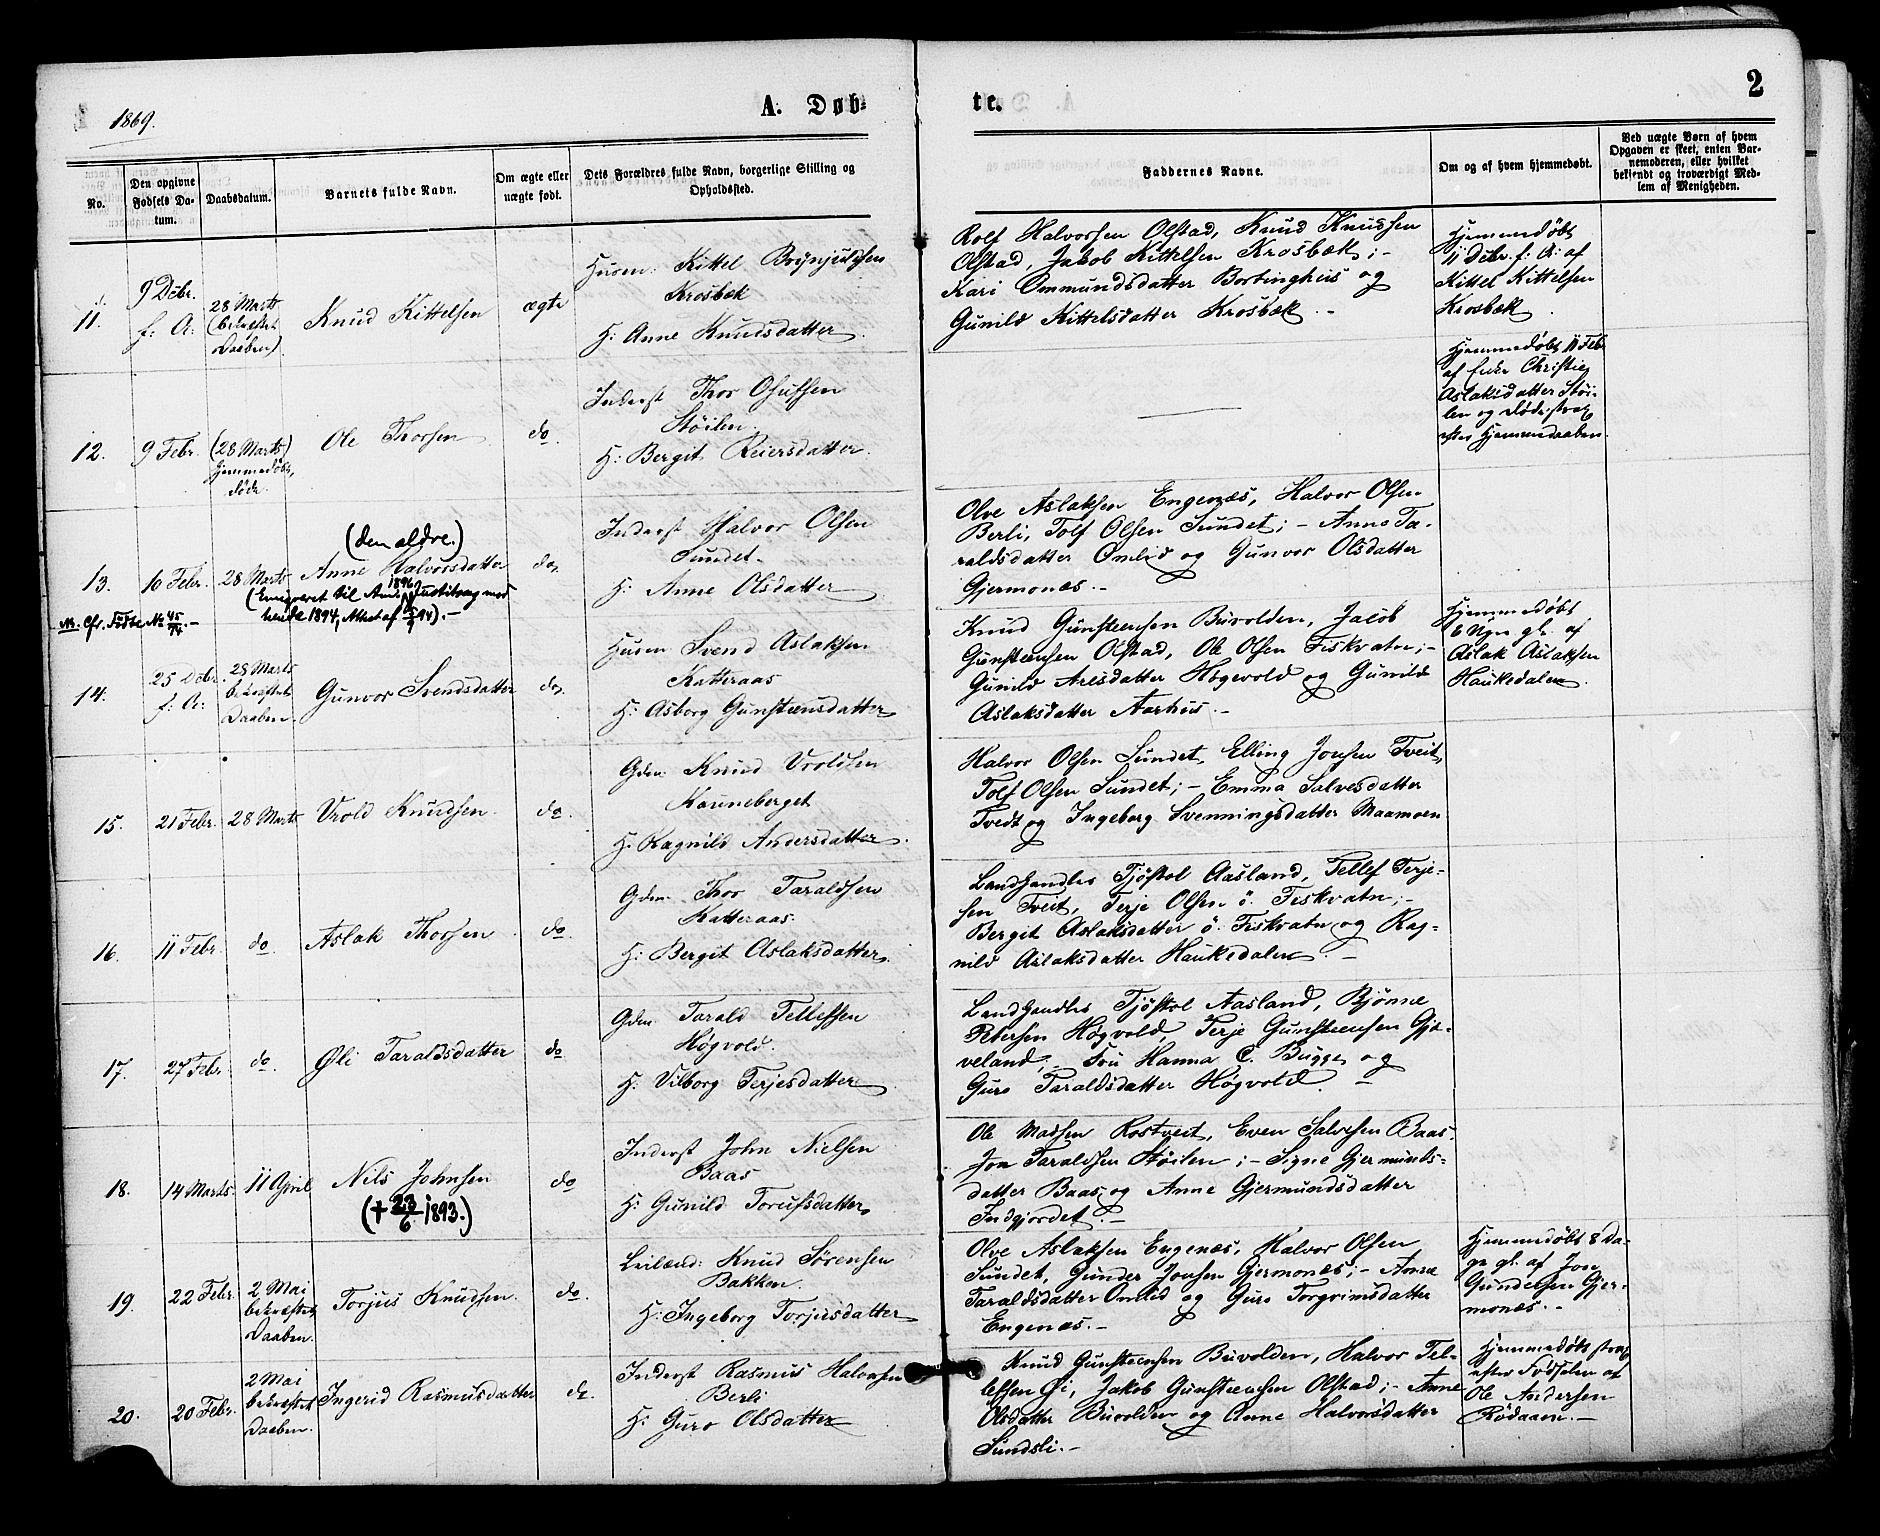 1869.
A. Døb-
te.
2
No.
Den opgivne Fødsels Da-tum.
Daabsdatum.
Barnets fulde Navn.
Om ægte eller uægte født.
Dets Forældres fulde Navn, borgerlige Stilling og Opholdssted.
Faddernes Navne.
Om og af hvem hjemmedøbt.
Ved uægte Børn af hvem Opgaven er skeet, enten Bar-nemoderen, eller hvilket bekjendt og troværdigt Med-lem af Menigheden.
11.
9 Debr.
f: A:
28 Marts
(bekræftet
Daaben)
Knud Kittelsen
ægte
Husm: Kittel Brynjulfsen
Krosbæk
H: Anne Knudsdatter
Rolf Halvorsen Olstad, Knud Knudsen
Olstad, Jakob Kittelsen Krosbæk; -
Kari Ommundsdatter Bortinghus og
Gunild Kittelsdatter Krosbæk. -
Hjemmedøbt
11 Debr. f: A: af
Kittel Kittelsen
Krosbæk
12.
9 Febr.
(28 Marts)
Hjemmedøbt,
døde.
Ole Thorsen
do.
Inderst Thor Olufsen
Støilen.
H: Bergit Reiersdatter.
Hjemmedøbt 11 Feb.
af Enke Christie
Aslaksdatter Støi-
len og døde strax
efter Hjemmedaaben.
13.
10 Febr.
28 Marts
(den ældre.)
Anne Halvorsdatter
do.
(Emigreret til Am. 1896
hende 1894, Attest af
N. Cfr. Fødte No 45/74. -
Inderst Halvor Olsen
Sundet.
H: Anne Olsdatter
Olve Aslaksen Engenæs, Halvor Olsen
Berli, Tolf Olsen Sundet; - Anne Ta-
raldsdatter Omlid og Gunvor Olsdatter
Gjermonæs. -
14.
25 Debr.
f. A:
28 Marts
bekræftet
Daaben
Gunvor Svendsdatter
do.
Husm Svend Aslaksen
Katteraas
H: Asborg Gunsteensdatter
Knud Gunsteensen Buvolden, Jacob
Gunsteensen Olstad, Ole Olsen Fiskvatn; -
Gunild Aresdatter Høgevold og Gunild
Aslaksdatter Aarhus. -
Hjemmedøbt
6 Uger gl. af
Aslak Aslaksen
Haukedalen.
15.
21 Febr.
28 Marts
Vrold Knudsen.
do.
Gdm. Knud Vroldsen
Kauneberget
H: Ragnild Andersdatter.
Halvor Olsen Sundet, Elling Jonsen Tveit,
Tolf Olsen Sundet; - Emma Salvesdatter
Tvedt og Ingeborg Svenningsdatter Maamoen
16.
11 Febr.
do.
Aslak Thorsen
do.
Gdm. Thor Taraldsen
Katteraas.
H: Bergit Aslaksdatter.
Landhandler Tjøstol Aasland, Tellef Terje-
sen Tveit, Terje Olsen ö. Fiskvatn; -
Bergit Aslaksdatter ö. Fiskvatn og Rag-
nild Aslaksdatter Haukedalen. -
17.
27 Febr.
do.
Øli Taraldsdatter
do
Gdm. Tarald Tellefsen
Høgvold.
H: Vilborg Terjesdatter
Landhandler Tjøstol Aasland, Bjønne
Petersen Høgvold, Terje Gunsteensen Gjø-
veland, - Fru Hanna C. Bugge og
Guro Taraldsdatter Høgvold. -
18.
14 Marts
11 April
Nils Johnsen
(† 23/6 1893.)
do
Inderst John Nielsen
Baas
H: Gunild Torufsdatter
Ole Madsen Rostveit, Even Salvesen Baas,
Jon Taraldsen Støilen; - Signe Gjermunds-
datter Baas, og Anne Gjermundsdatter
Indgjordet. -
19.
22 Febr.
2 Mai
bekræftet
Daaben.
Torjus Knudsen.
do.
Leilænd: Knud Sørensen
Bakken.
H: Ingeborg Torjusdatter
Olve Aslaksen Engenæs, Halvor Olsen
Sundet, Gunder Jonsen Gjermonæs; - Anne
Taraldsdatter Omlid og Guro Torgrimsdatter
Engenæs. -
Hjemmedøbt 8 Da-
ge gl. af Jon
Gundersen Gjer-
monæs. -
20.
20 Febr.
2 Mai
bekræftet
Daaben.
Ingerid Rasmusdatter
do.
Inderst Rasmus Halvorsen
Berli
H: Guro Olsdatter
Knud Gunsteensen Buvolden, Halvor Tel-
lefsen Øi, Jakob Gunsteensen Olstad; - Anne
Olsdatter Buvolden og Anne Halvorsdatter
Sundsli. -
Hjemmedøbt strax
efter Fødselen af
Ole Andersen
Rødaaen. -